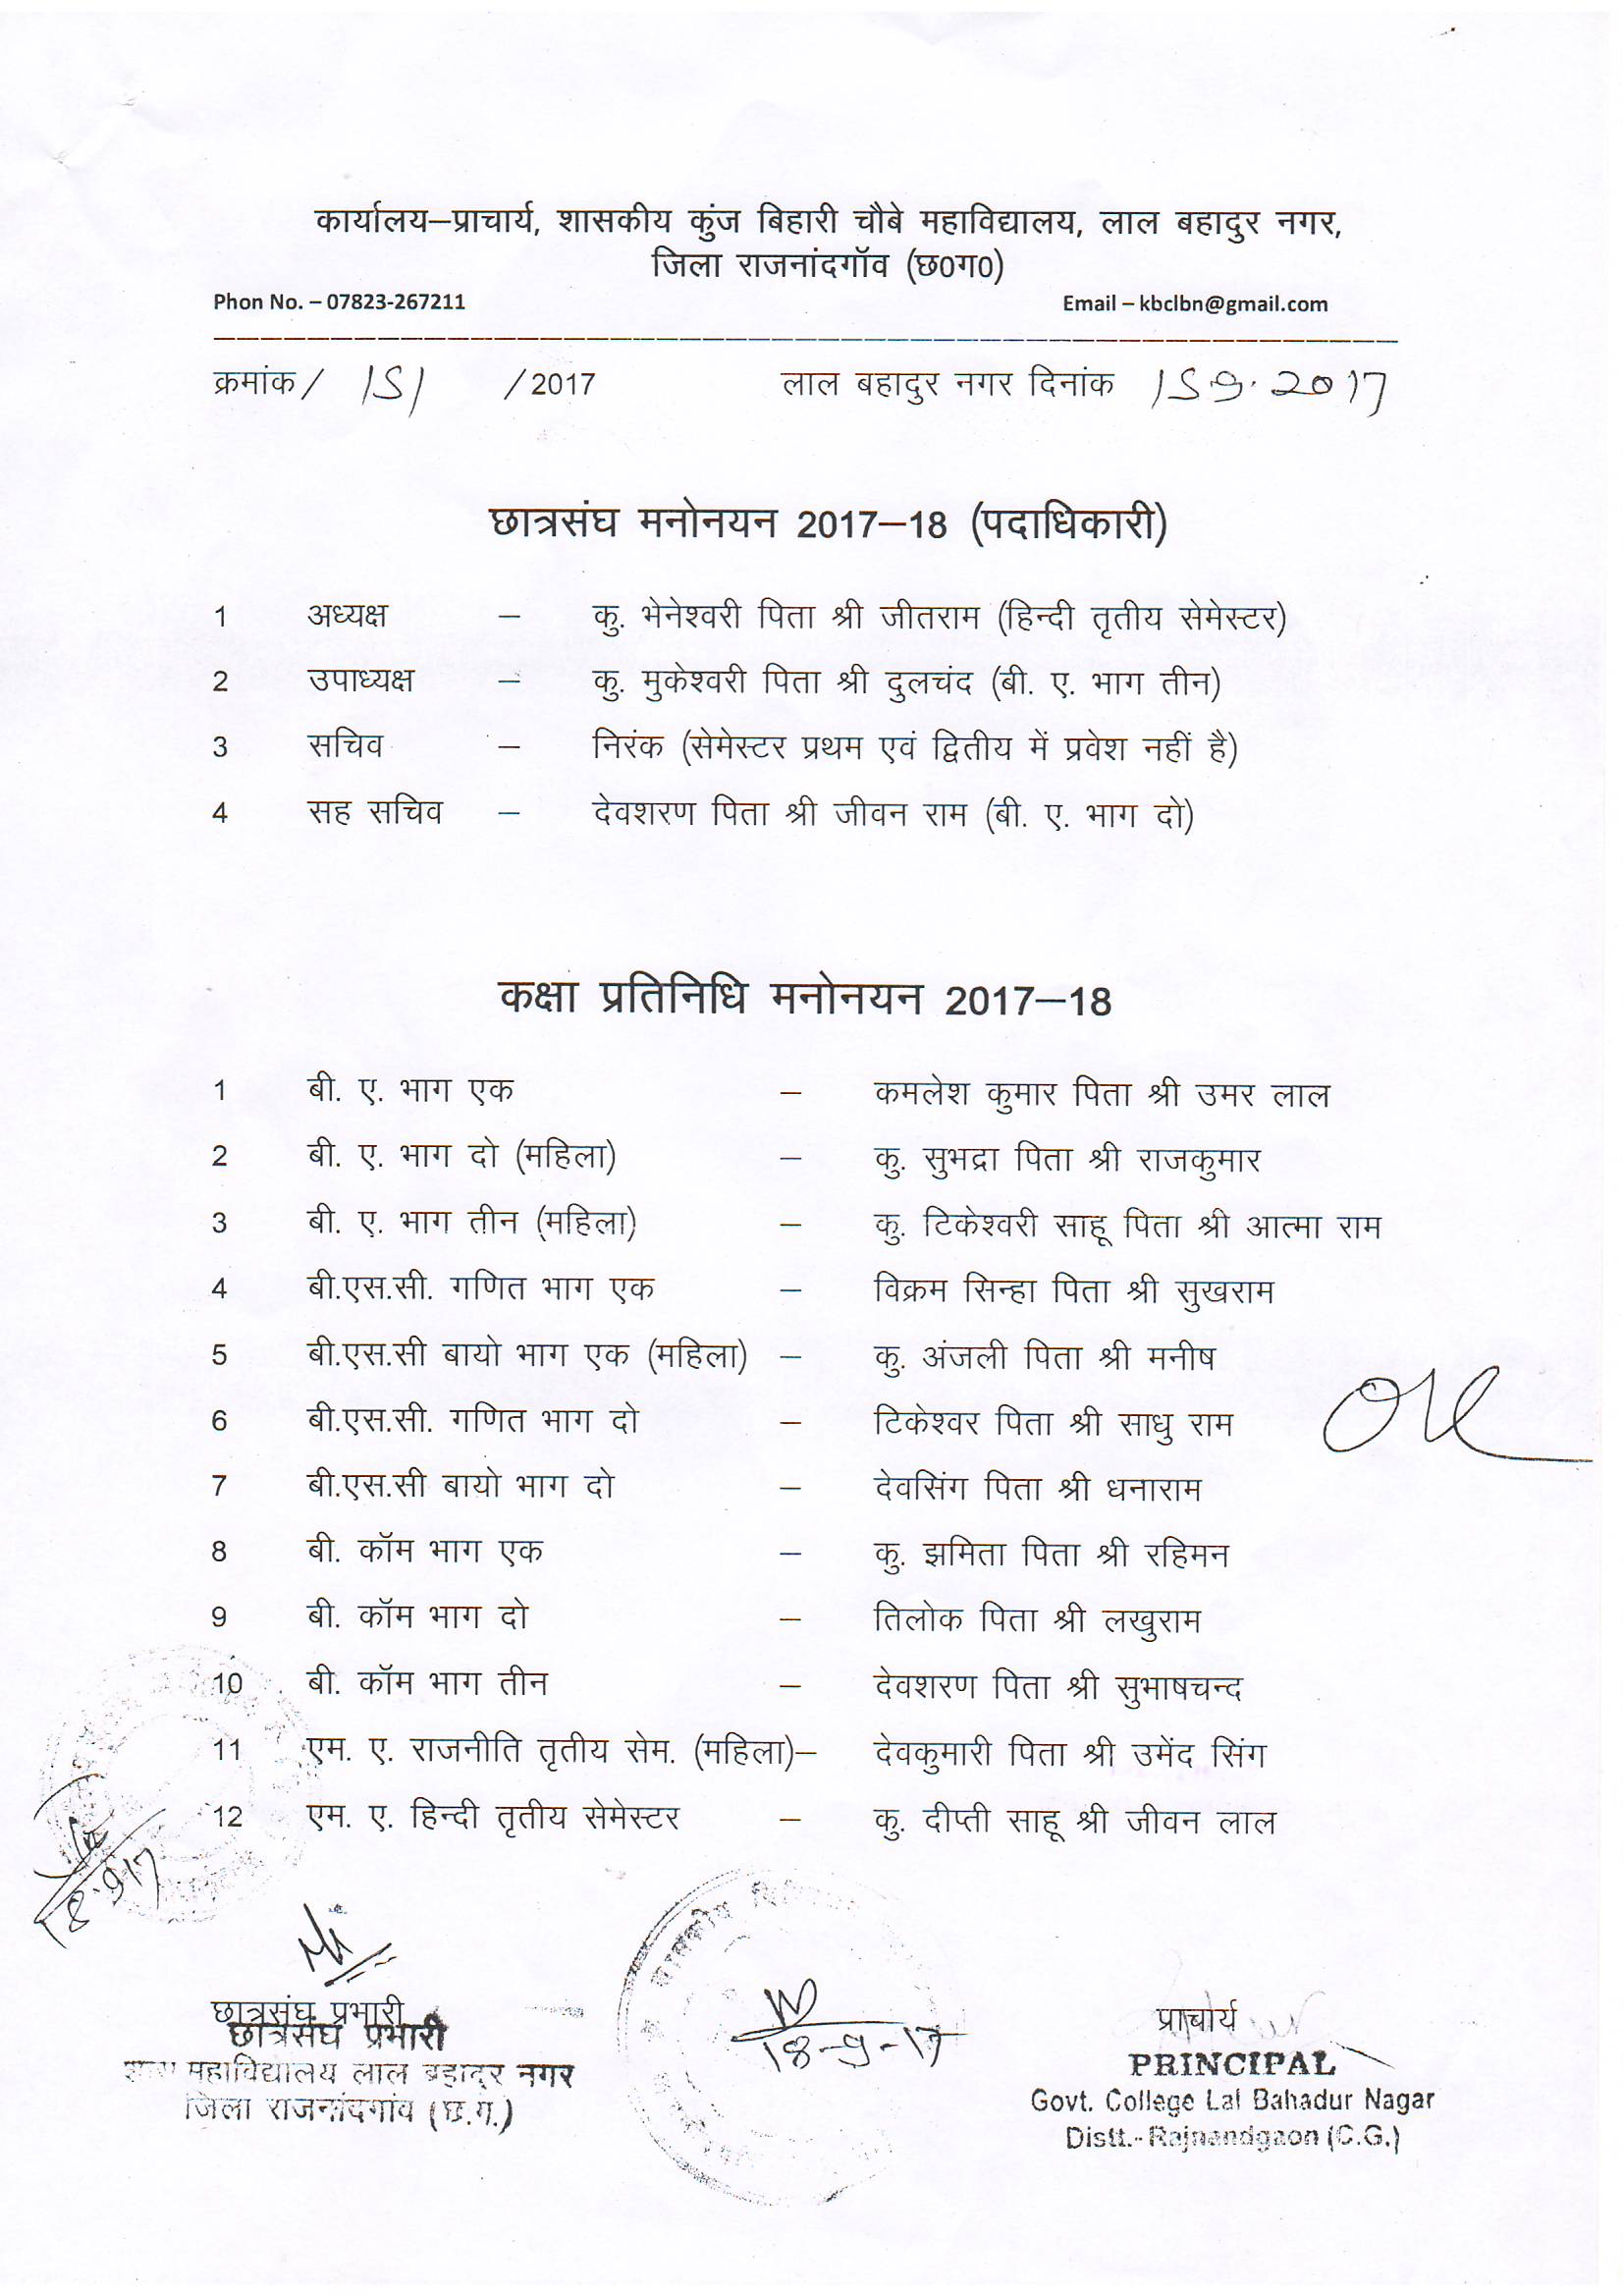 कार्यालय–प्राचार्य, शासकीय कुंज बिहारी चौबे महाविद्यालय, लाल बहादुर नगर,
जिला राजनांदगॉव (छ0ग0)
Phon No. – 07823-267211 Email – kbclbn@gmail.com
क्रमांक / 151 / 2017 लाल बहादुर नगर दिनांक 15.9.2017
छात्रसंघ मनोनयन 2017–18 (पदाधिकारी)
1 अध्यक्ष – कु. भेनेश्वरी पिता श्री जीतराम (हिन्दी तृतीय सेमेस्टर)
2 उपाध्यक्ष – कु. मुकेश्वरी पिता श्री दुलचंद (बी. ए. भाग तीन)
3 सचिव – निरंक (सेमेस्टर प्रथम एवं द्वितीय में प्रवेश नहीं है)
4 सह सचिव – देवशरण पिता श्री जीवन राम (बी. ए. भाग दो)
कक्षा प्रतिनिधि मनोनयन 2017–18
1 बी. ए. भाग एक – कमलेश कुमार पिता श्री उमर लाल
2 बी. ए. भाग दो (महिला) – कु. सुभद्रा पिता श्री राजकुमार
3 बी. ए. भाग तीन (महिला) – कु. टिकेश्वरी साहू पिता श्री आत्मा राम
4 बी.एस.सी. गणित भाग एक – विक्रम सिन्हा पिता श्री सुखराम
5 बी.एस.सी बायो भाग एक (महिला) – कु. अंजली पिता श्री मनीष
6 बी.एस.सी. गणित भाग दो – टिकेश्वर पिता श्री साधु राम
7 बी.एस.सी बायो भाग दो – देवसिंग पिता श्री धनाराम
8 बी. कॉम भाग एक – कु. झमिता पिता श्री रहिमन
9 बी. कॉम भाग दो – तिलोक पिता श्री लखुराम
10 बी. कॉम भाग तीन – देवशरण पिता श्री सुभाषचन्द
11 एम. ए. राजनीति तृतीय सेम. (महिला)– देवकुमारी पिता श्री उमेंद सिंग
12 एम. ए. हिन्दी तृतीय सेमेस्टर – कु. दीप्ती साहू श्री जीवन लाल
18.9.17
18-9-17
छात्रसंघ प्रभारी प्राचार्य
छात्रसंघ प्रभारी PRINCIPAL
महाविद्यालय लाल बहादुर नगर Govt. College Lal Bahadur Nagar
जिला राजनांदगांव (छ.ग.) Distt.- Rajnandgaon (C.G.)
शासकीय